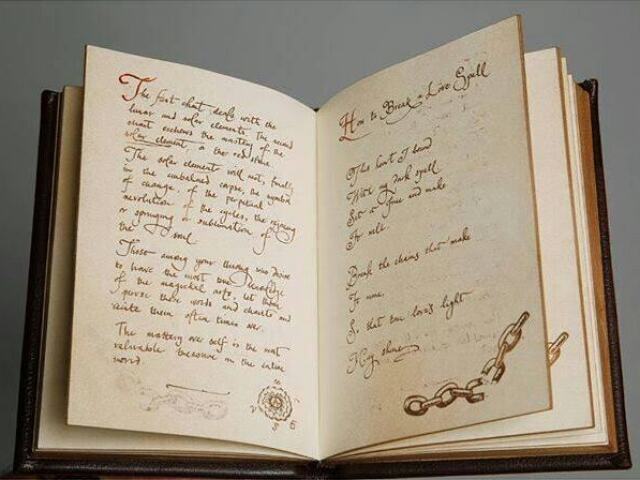 The first chant deals with the
lunar and solar elements. The second
chant eschews the mastery of the
solar element, a thir red stone.
The solar element will not, finally
in the embalmed corpse, the symbol
of change, of the perpetual
revolution of the cycles, the
or springing or sublimation of
the soul.
Those among your
to have the most true knowledge
of the magickal arts, let them
peruse these words and charts and
recite them often times over.
The mastery over self is the most
valuable treasure in the entire
world.
How to Break a Love Spell
This heart I bound
With my dark spell
Set it free and make
It well.
Break the chains that make
It mine,
So that true love's light
May shine